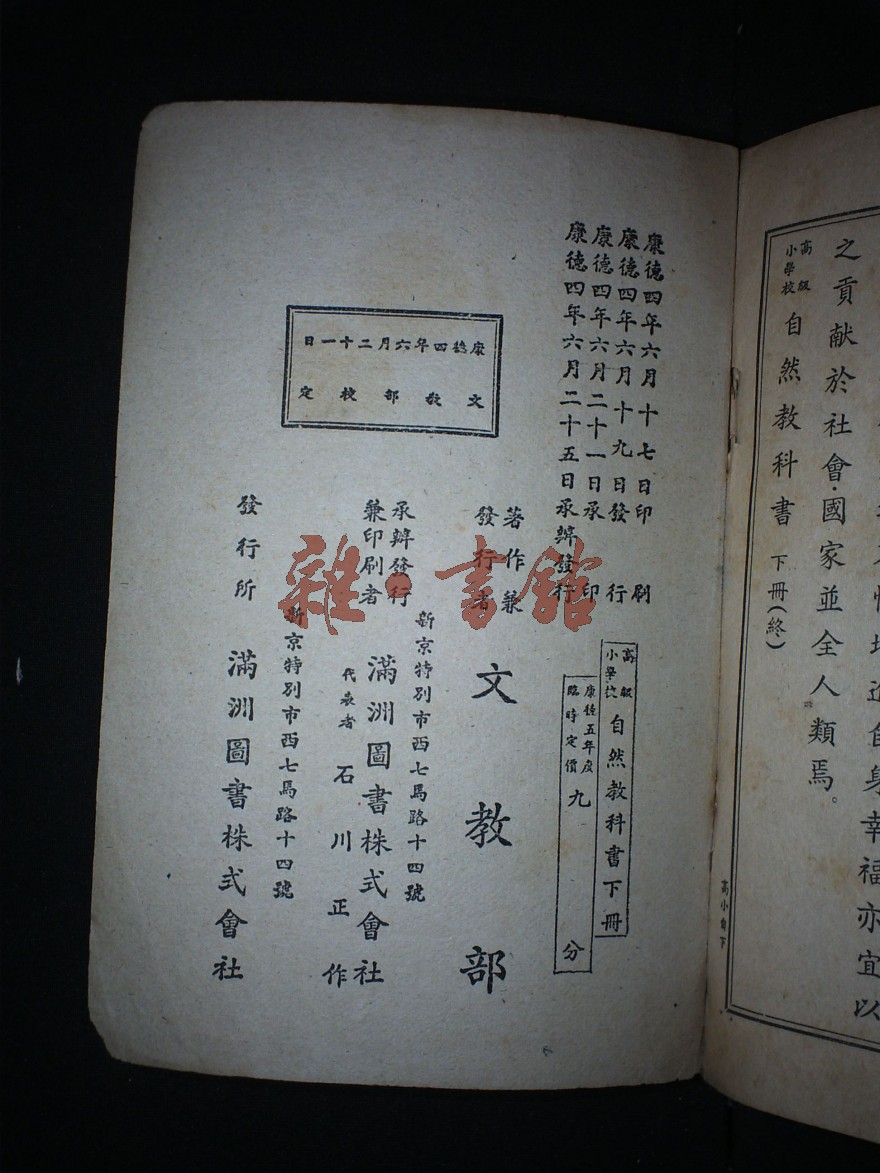 之貢献於社會·國家並全人類焉。
高級小學校 自然教科書 下冊(終)
高小自下
康德四年六月十七日印刷
康德四年六月十九日發行
康德四年六月二十一日承印
康德四年六月二十五日承辨發行
高級小學校 自然教科書下冊
康德五年度臨時定價 九分
著作兼發行者 文教部
新京特別市西七馬路十四號
承辨發行兼印刷者 滿洲圖書株式會社
代表者 石川正作
新京特別市西七馬路十四號
發行所 滿洲圖書株式會社
康德四年六月二十一日
文教部校定
雜·書館